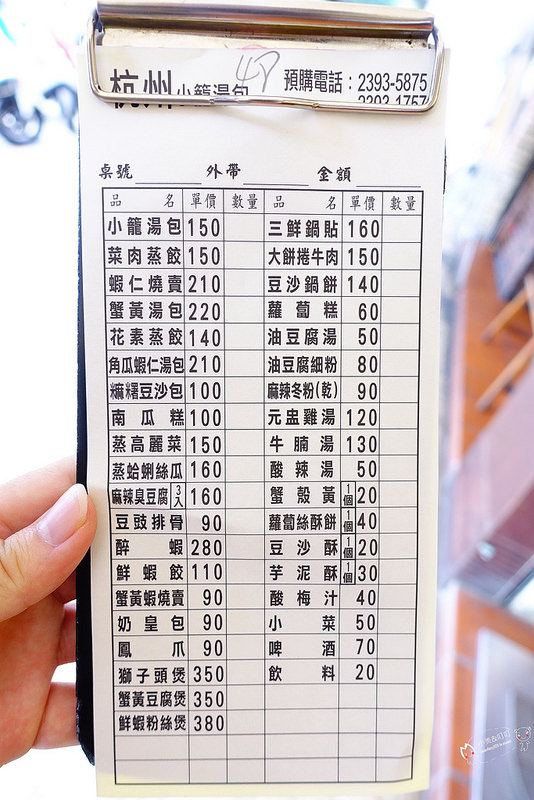 杭州小籠湯包 47 預購電話：2393-5875
2393-1757
桌號 外帶 金額
品名 單價 數量 品名 單價 數量
小籠湯包 150 三鮮鍋貼 160
菜肉蒸餃 150 大餅捲牛肉 150
蝦仁燒賣 210 豆沙鍋餅 140
蟹黃湯包 220 蘿蔔糕 60
花素蒸餃 140 油豆腐湯 50
角瓜蝦仁湯包 210 油豆腐細粉 80
糯糬豆沙包 100 麻辣冬粉(乾) 90
南瓜糕 100 元盅雞湯 120
蒸高麗菜 150 牛腩湯 130
蒸蛤蜊絲瓜 160 酸辣湯 50
麻辣臭豆腐 3入 160 蟹殼黃 1個 20
豆豉排骨 90 蘿蔔絲酥餅 1個 40
醉蝦 280 豆沙酥 1個 20
鮮蝦餃 110 芋泥酥 1個 30
蟹黃蝦燒賣 90 酸梅汁 40
奶皇包 90 小菜 50
鳳爪 90 啤酒 70
獅子頭煲 350 飲料 20
蟹黃豆腐煲 350
鮮蝦粉絲煲 380